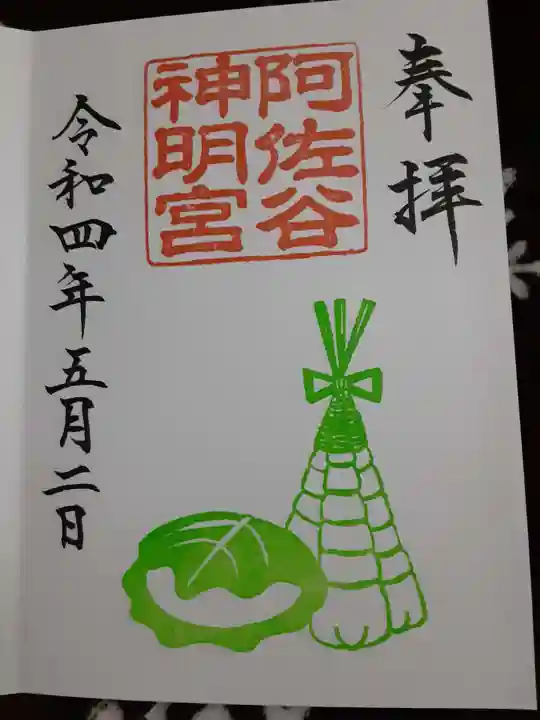 奉拝
阿佐谷
神明宮
令和四年五月二日